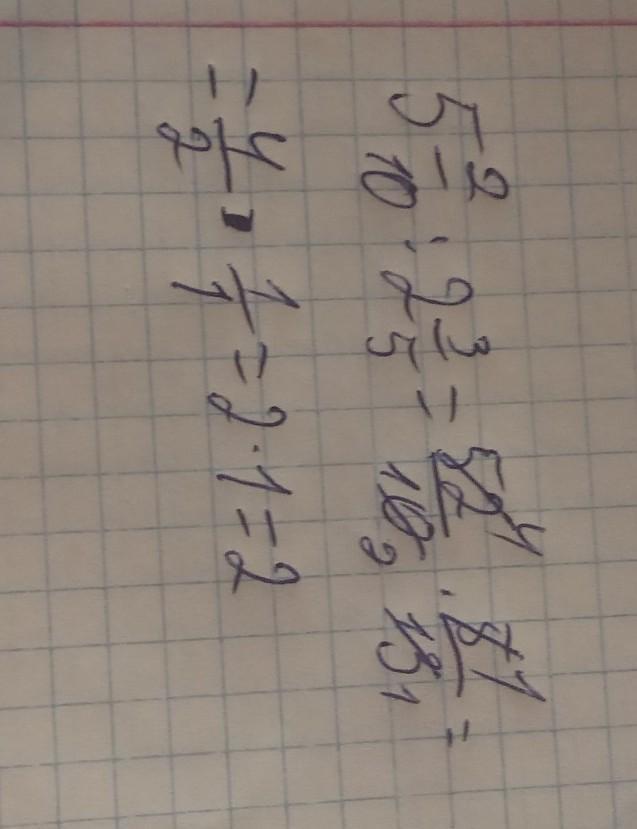 5 2/10 : 2 3/5 = 52 4/10 2 · 5 1/13 1 =
= 4/2 · 1/1 = 2 · 1 = 2